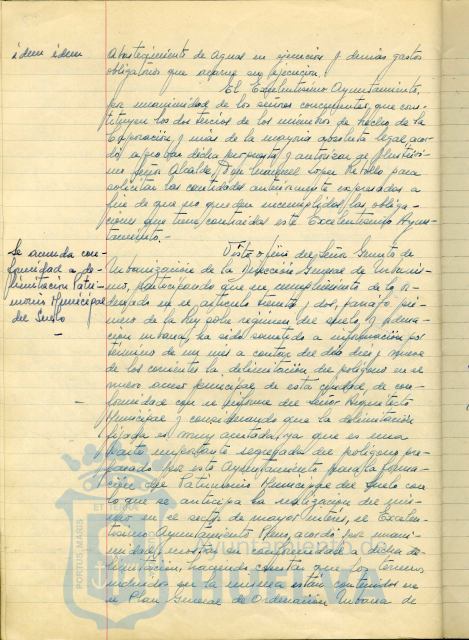 idem idem
Abastecimiento de Aguas en ejercicios y demás gastos
obligatorios que acarree su ejecución.
El Excelentísimo Ayuntamiento,
por unanimidad de los señores concurrentes, que cons-
tituyen los dos tercios de los miembros de hecho de la
Corporación y más de la mayoría absoluta legal, acor-
dó aprobar dicha propuesta y autorizar al Ilustrísi-
mo Señor Alcalde, Don Manuel López Rebollo para
solicitar las cantidades anteriormente expresadas a
fin de que no queden incumplidas las obliga-
ciones que tiene contraidas este Excelentísimo Ayun-
tamiento.-
Se acuerda con-
formidad a de-
limitación Patri-
monio Municipal
del Suelo
Visto oficio del Señor Gerente de
Urbanización de la Dirección General de Urbanis-
mo, participando que en cumplimiento de lo or-
denado en el artículo ciento y dos, párrafo pri-
mero de la Ley sobre régimen del suelo y orde-
nación urbana, ha sido sometido a información por
término de un mes a contar del día diez y nueve
de los corrientes la delimitación del polígono en el
nuevo acceso principal de esta ciudad, de con-
formidad con el informe del Señor Arquitecto
Municipal y considerando que la delimitación
fijada es muy acertada, ya que es una
parte importante segregada del polígono pre-
parado por este Ayuntamiento para la forma-
ción del Patrimonio Municipal del Suelo con
lo que se anticipa la realización del mis-
mo en el sector de mayor interés, el Excelen-
tísimo Ayuntamiento Pleno, acordó por unani-
midad, mostrar su conformidad a dicha de-
limitación, haciendo constar que los terrenos
incluidos en la misma están contenidos en
el Plan General de Ordenación Urbana de
PORTUS MARIS
ET TERRAE
Ayuntamiento de
HUELVA